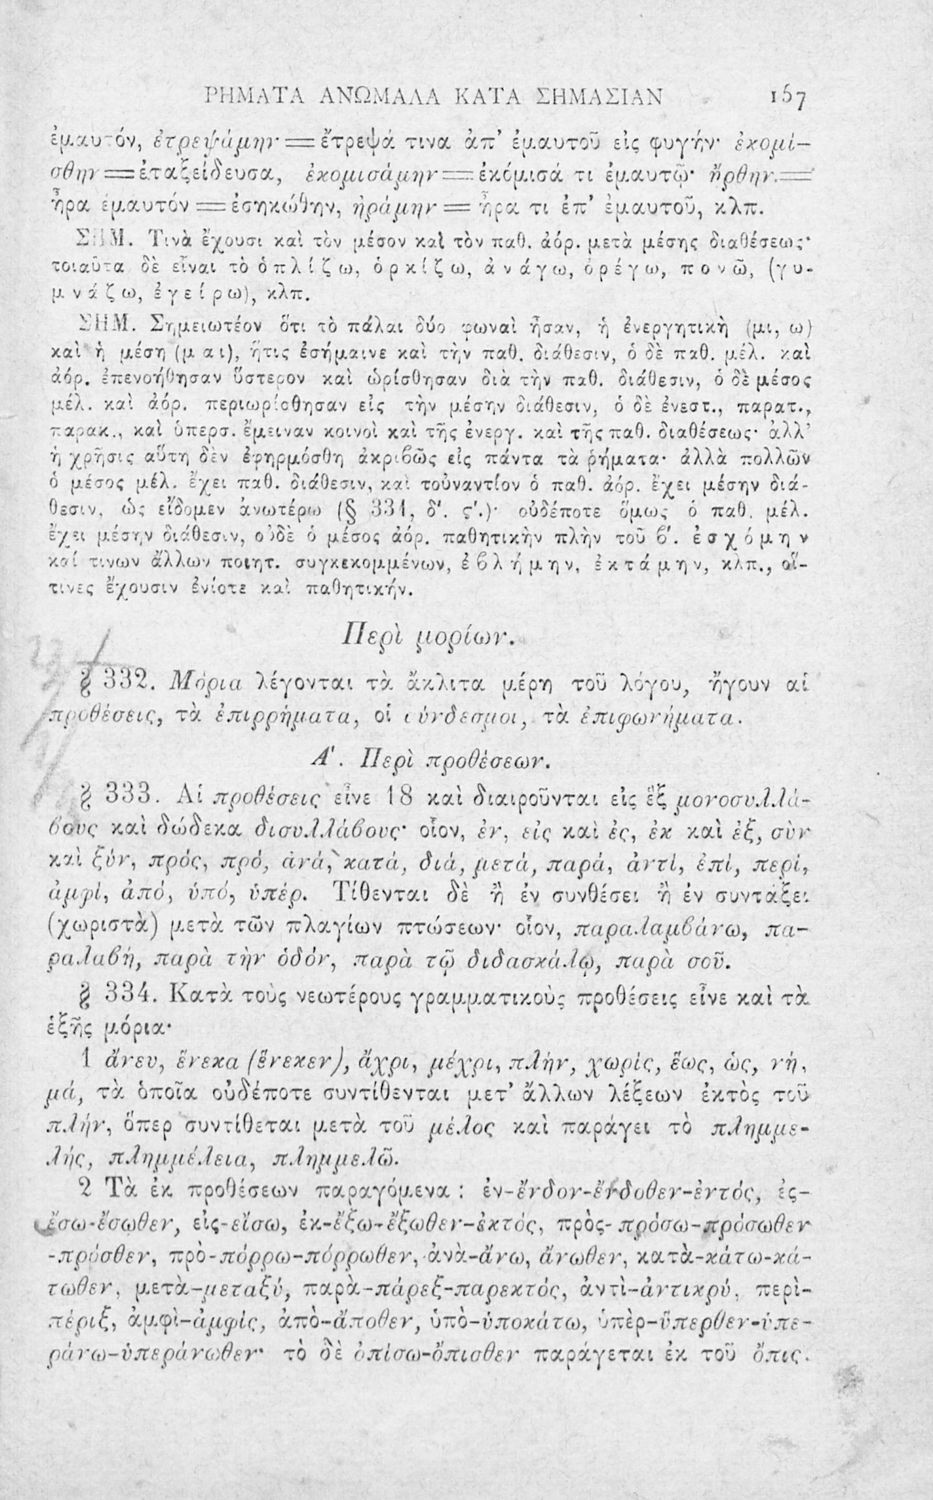 ΡΗΜΑΤΑ ΑΝΩΜΑΛΑ ΚΑΤΑ ΣΗΜΑΣΙΑΝ 157
ἐμαυτόν, ἐτρεψάμην = ἔτρεψά τινα ἀπ’ ἐμαυτοῦ εἰς φυγήν· ἐκομί-
σθην = ἐταξείδευσα, ἐκομισάμην = ἐκόμισά τι ἐμαυτῷ· ἤρθην =
ἦρα ἐμαυτόν = ἐσηκώθην, ἠράμην = ἦρα τι ἐπ’ ἐμαυτοῦ, κλπ.
ΣΗΜ. Τινὰ ἔχουσι καὶ τὸν μέσον καὶ τὸν παθ. ἀόρ. μετὰ μέσης διαθέσεως·
τοιαῦτα δὲ εἶναι τὸ ὁπλίζω, ὁρκίζω, ἀνάγω, ὀρέγω, πονῶ, (γυ-
μνάζω, ἐγείρω), κλπ.
ΣΗΜ. Σημειωτέον ὅτι τὸ πάλαι δύο φωναὶ ἦσαν, ἡ ἐνεργητικὴ (μι, ω)
καὶ ἡ μέση (μαι), ἥτις ἐσήμαινε καὶ τὴν παθ. διάθεσιν, ὁ δὲ παθ. μέλ. καὶ
ἀόρ. ἐπενοήθησαν ὕστερον καὶ ὡρίσθησαν διὰ τὴν παθ. διάθεσιν, ὁ δὲ μέσος
μέλ. καὶ ἀόρ. περιωρίσθησαν εἰς τὴν μέσην διάθεσιν, ὁ δὲ ἐνεστ., παρατ.,
παρακ., καὶ ὑπερσ. ἔμειναν κοινοὶ καὶ τῆς ἐνεργ. καὶ τῆς παθ. διαθέσεως· ἀλλ’
ἡ χρῆσις αὕτη δὲν ἐφηρμόσθη ἀκριβῶς εἰς πάντα τὰ ῥήματα· ἀλλὰ πολλῶν
ὁ μέσος μέλ. ἔχει παθ. διάθεσιν, καὶ τοὐναντίον ὁ παθ. ἀόρ. ἔχει μέσην διά-
θεσιν, ὡς εἴδομεν ἀνωτέρω (§ 331, δ'. ς'.)· οὐδέποτε ὅμως ὁ παθ. μέλ.
ἔχει μέσην διάθεσιν, οὐδὲ ὁ μέσος ἀόρ. παθητικὴν πλὴν τοῦ β'. ἐσχόμην
καί τινων ἄλλων ποιητ. συγκεκομμένων, ἐβλήμην, ἐκτάμην, κλπ., οἵ-
τινες ἔχουσιν ἐνίοτε καὶ παθητικήν.
Περὶ μορίων.
§ 332. Μόρια λέγονται τὰ ἄκλιτα μέρη τοῦ λόγου, ἤγουν αἱ
προθέσεις, τὰ ἐπιρρήματα, οἱ σύνδεσμοι, τὰ ἐπιφωνήματα.
Α'. Περὶ προθέσεων.
§ 333. Αἱ προθέσεις εἶνε 18 καὶ διαιροῦνται εἰς ἓξ μονοσυλλά-
βους καὶ δώδεκα δισυλλάβους· οἷον, ἐν, εἰς καὶ ἐς, ἐκ καὶ ἐξ, σὺν
καὶ ξύν, πρός, πρό, ἀνά, κατά, διά, μετά, παρά, ἀντί, ἐπί, περί,
ἀμφί, ἀπό, ὑπό, ὑπέρ. Τίθενται δὲ ἢ ἐν συνθέσει ἢ ἐν συντάξει
(χωριστὰ) μετὰ τῶν πλαγίων πτώσεων· οἷον, παραλαμβάνω, πα-
ραλαβή, παρὰ τὴν ὁδόν, παρὰ τῷ διδασκάλῳ, παρὰ σοῦ.
§ 334. Κατὰ τοὺς νεωτέρους γραμματικοὺς προθέσεις εἶνε καὶ τὰ
ἑξῆς μόρια·
1 ἄνευ, ἕνεκα (ἕνεκεν), ἄχρι, μέχρι, πλήν, χωρίς, ἕως, ὡς, νή,
μά, τὰ ὁποῖα οὐδέποτε συντίθενται μετ’ ἄλλων λέξεων ἐκτὸς τοῦ
πλήν, ὅπερ συντίθεται μετὰ τοῦ μέλος καὶ παράγει τὸ πλημμε-
λής, πλημμέλεια, πλημμελῶ.
2 Τὰ ἐκ προθέσεων παραγόμενα : ἐν-ἔνδον-ἔνδοθεν-ἐντός, ἐς-
ἔσω-ἔσωθεν, εἰς-εἴσω, ἐκ-ἔξω-ἔξωθεν-ἐκτός, πρὸς-πρόσω-πρόσωθεν
-πρόσθεν, πρὸ-πόρρω-πόρρωθεν, ἀνὰ-ἄνω, ἄνωθεν, κατὰ-κάτω-κά-
τωθεν, μετὰ-μεταξύ, παρὰ-πάρεξ-παρεκτός, ἀντὶ-ἀντικρύ, περὶ-
πέριξ, ἀμφὶ-ἀμφίς, ἀπὸ-ἄποθεν, ὑπὸ-ὑποκάτω, ὑπὲρ-ὕπερθεν-ὑπε-
ράνω-ὑπεράνωθεν· τὸ δὲ ὀπίσω-ὄπισθεν παράγεται ἐκ τοῦ ὄπις.